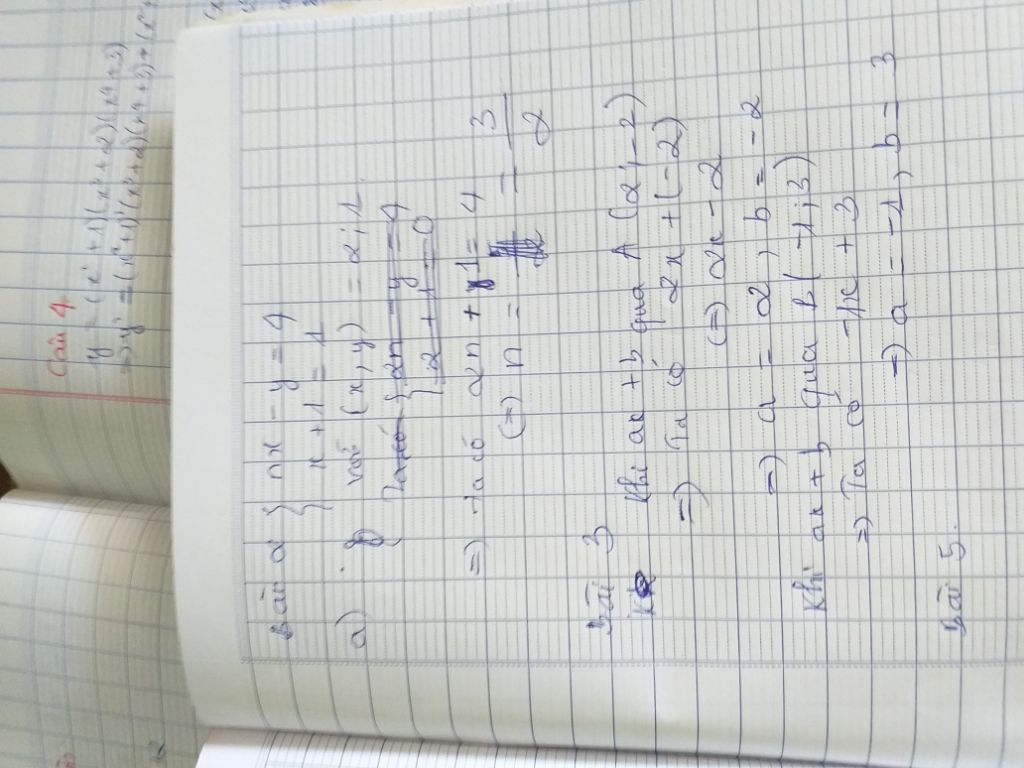 Câu 4
y = (x²+1)(x³+2)(x⁴+3)
=> y' = (x²+1)'(x³+2)(x⁴+3)+(x²
Bài 2 { nx - y = 4
x + 1 = 1
a) với (x, y) = 2; 1.
Ta có { 2n - y = 4
2 + 1 = 0
=> Ta có 2n + 1 = 4
(=) n = = 3/2
Bài 3
Khi ax + b qua A (2; -2)
=> Ta có 2x + (-2)
(=) 2x - 2
=> a = 2, b = -2
Khi ax + b qua B( -1; 3)
=> Ta có -1x + 3
=> a = -1, b = 3
Bài 5.